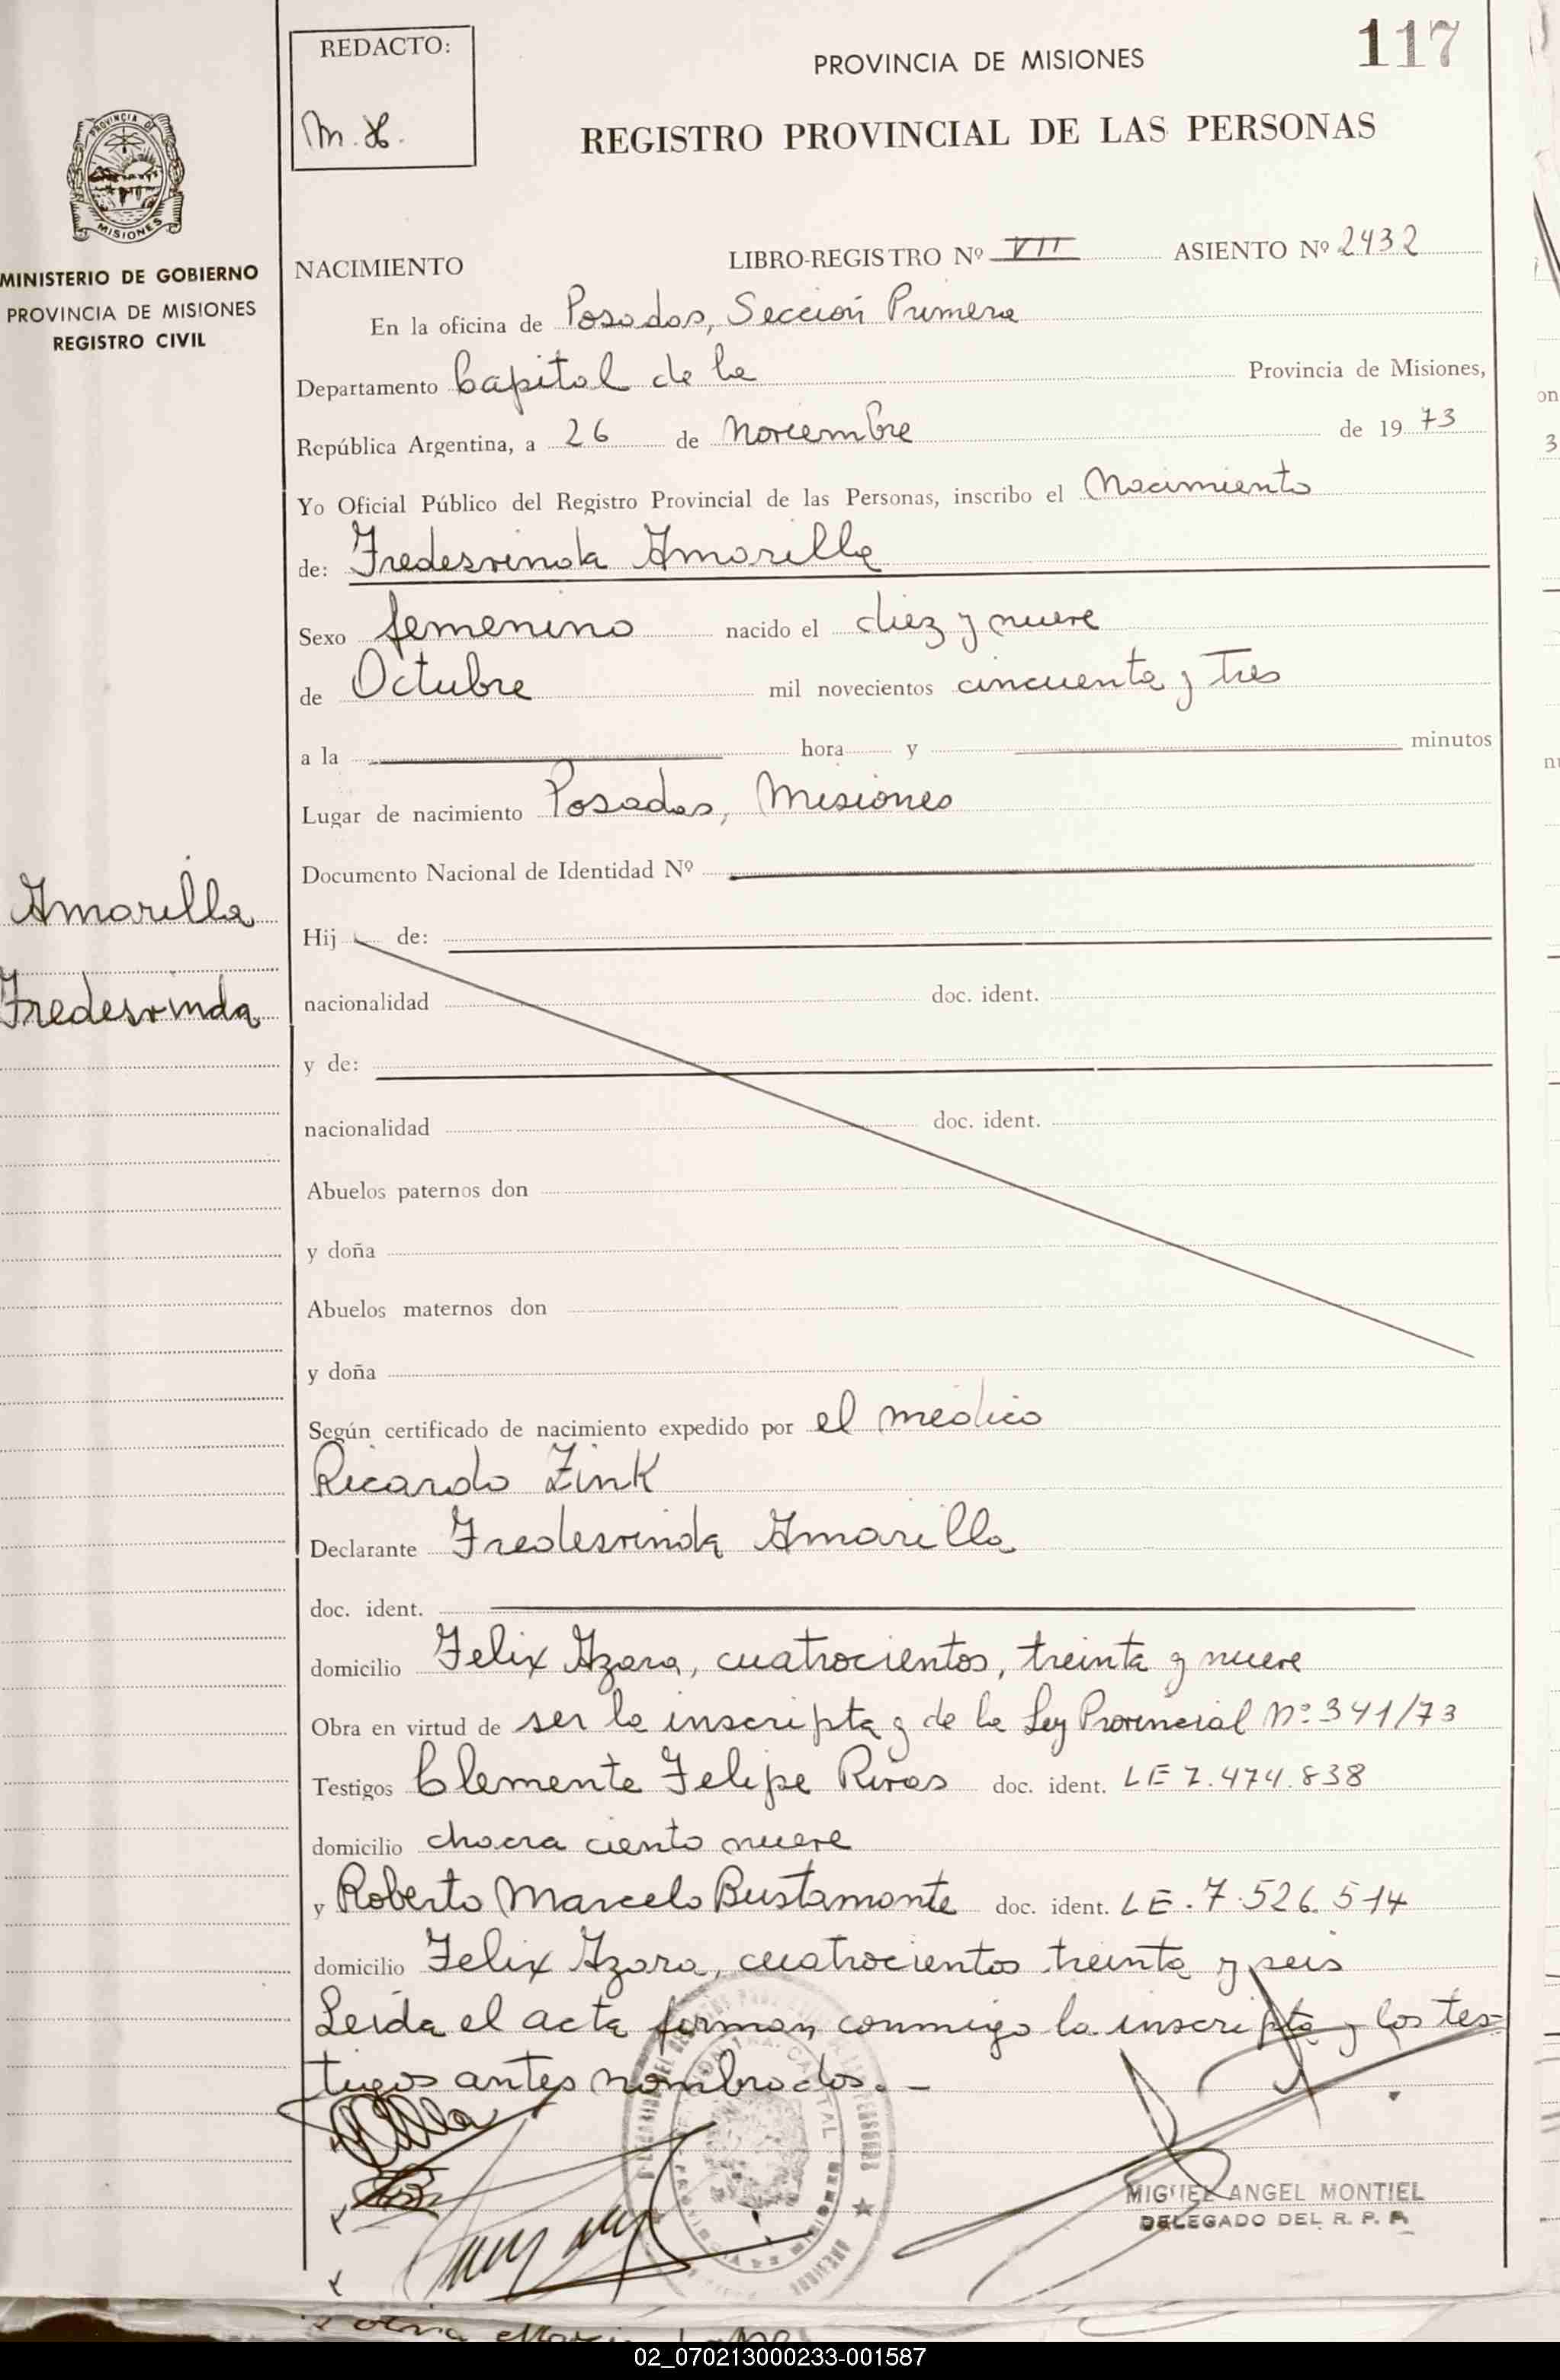 REDACTO:
M. H.
PROVINCIA DE MISIONES
117
REGISTRO PROVINCIAL DE LAS PERSONAS
PROVINCIA DE
MISIONES
MINISTERIO DE GOBIERNO
PROVINCIA DE MISIONES
REGISTRO CIVIL
NACIMIENTO LIBRO-REGISTRO Nº VII ASIENTO Nº 2432
En la oficina de Posadas, Sección Primera
Departamento Capital de la Provincia de Misiones,
República Argentina, a 26 de Noviembre de 1973
Yo Oficial Público del Registro Provincial de las Personas, inscribo el Nacimiento
de: Fredesvinda Amarilla
Sexo femenino nacido el diez y nueve
de Octubre mil novecientos cincuenta y Tres
a la hora y minutos
Lugar de nacimiento Posadas, Misiones
Documento Nacional de Identidad Nº
Amarilla
Fredesvinda
Hij de:
nacionalidad doc. ident.
y de:
nacionalidad doc. ident.
Abuelos paternos don
y doña
Abuelos maternos don
y doña
Según certificado de nacimiento expedido por el médico
Ricardo Zink
Declarante Fredesvinda Amarilla
doc. ident.
domicilio Felix Azara, cuatrocientos, treinta y nueve
Obra en virtud de ser la inscripta y de la Ley Provincial Nº 341/73
Testigos Clemente Felipe Rivas doc. ident. LE 7.474.838
domicilio chacra ciento nueve
y Roberto Marcelo Bustamante doc. ident. LE. 7.526.514
domicilio Felix Azara, cuatrocientos treinta y seis
Leída el acta firman conmigo la inscripta y los tes-
tigos antes nombrados. -
MIGUEL ANGEL MONTIEL
DELEGADO DEL R. P. P.
02_070213000233-001587